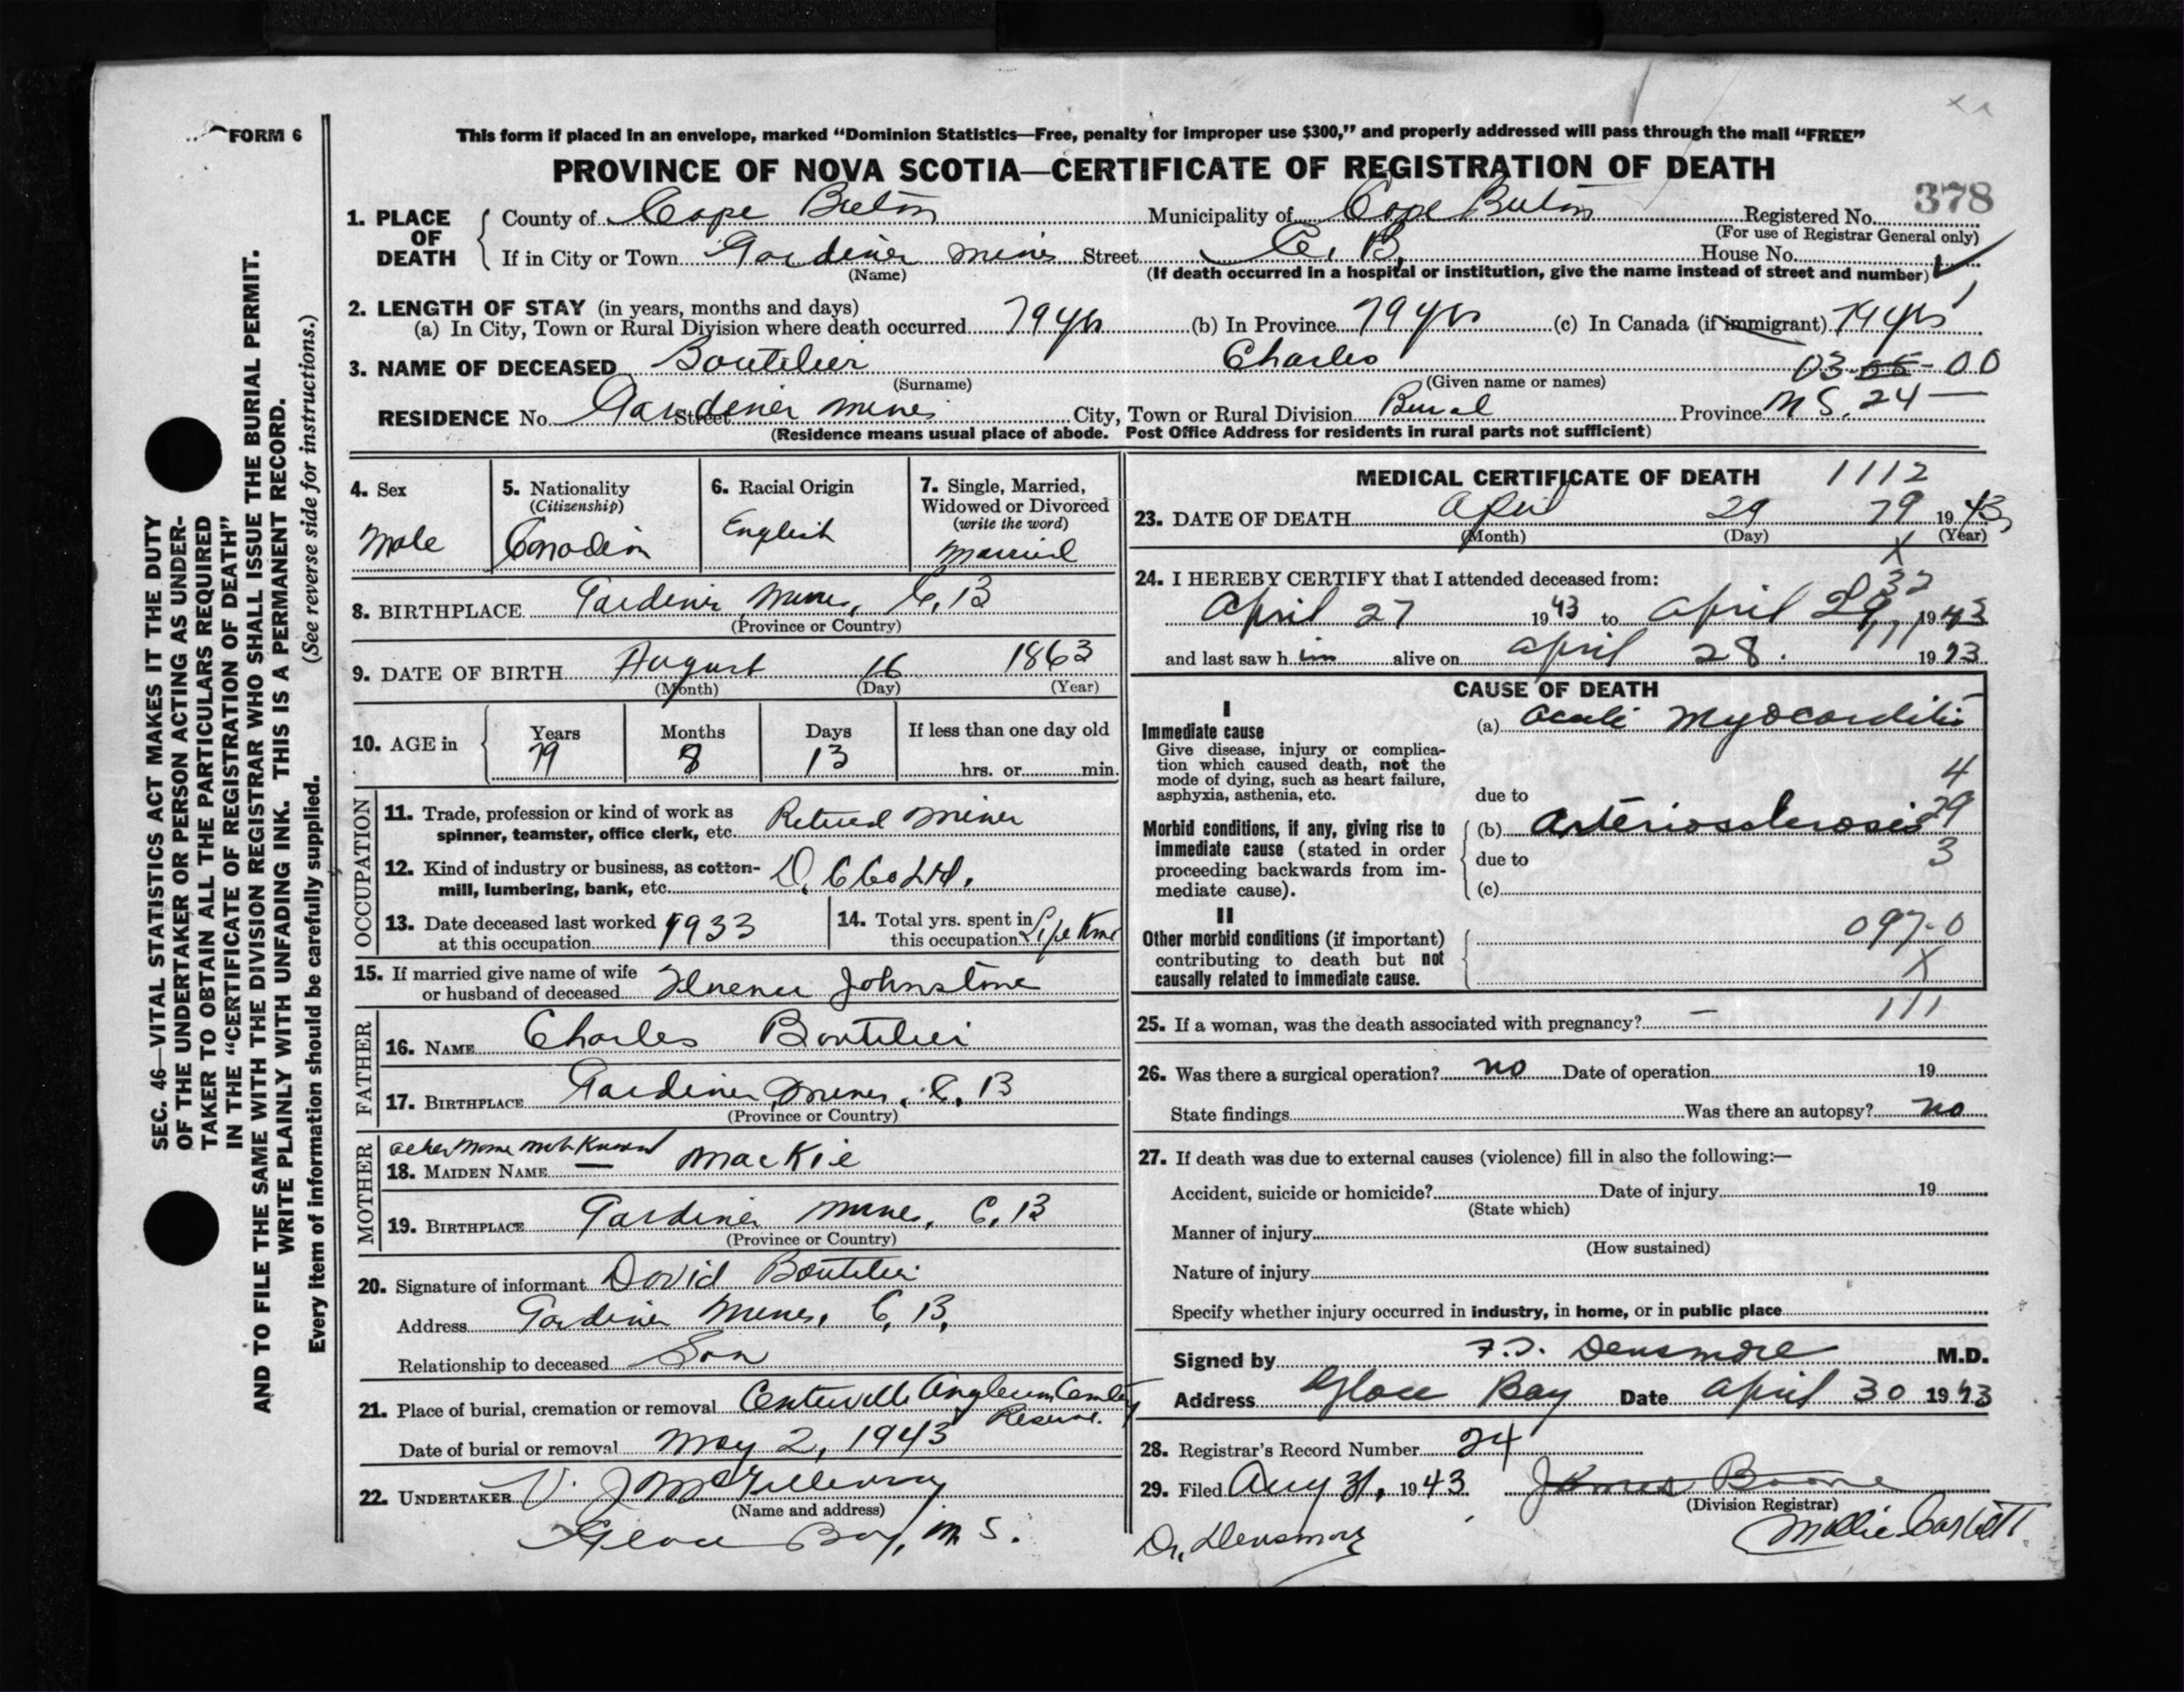 FORM 6
This form if placed in an envelope, marked “Dominion Statistics—Free, penalty for improper use $300,” and properly addressed will pass through the mail “FREE”
PROVINCE OF NOVA SCOTIA—CERTIFICATE OF REGISTRATION OF DEATH
378
1. PLACE OF DEATH County of Cape Breton Municipality of Cape Breton Registered No.
(For use of Registrar General only)
If in City or Town Gardiner Mines Street C. B. House No.
(Name) (If death occurred in a hospital or institution, give the name instead of street and number)
2. LENGTH OF STAY (in years, months and days)
(a) In City, Town or Rural Division where death occurred 79 yrs (b) In Province 79 yrs (c) In Canada (if immigrant) 79 yrs
3. NAME OF DECEASED Boutilier Charles 03-05-00
(Surname) (Given name or names)
RESIDENCE No. Gardiner Mines Street City, Town or Rural Division Rural Province N S. 24 —
(Residence means usual place of abode. Post Office Address for residents in rural parts not sufficient)
4. Sex Male
5. Nationality (Citizenship) Canadian
6. Racial Origin English
7. Single, Married, Widowed or Divorced (write the word) Married
8. BIRTHPLACE Gardiner Mines, C, B
(Province or Country)
9. DATE OF BIRTH August 16 1863
(Month) (Day) (Year)
10. AGE in Years 79 Months 8 Days 13 If less than one day old hrs. or min.
OCCUPATION
11. Trade, profession or kind of work as spinner, teamster, office clerk, etc. Retired Miner
12. Kind of industry or business, as cotton-mill, lumbering, bank, etc. D. C Co Ltd.
13. Date deceased last worked at this occupation 1933
14. Total yrs. spent in this occupation Life time
15. If married give name of wife or husband of deceased Florence Johnstone
FATHER
16. NAME Charles Boutilier
17. BIRTHPLACE Gardiner Mines, C, B
(Province or Country)
MOTHER
other Name Not Known
18. MAIDEN NAME — MacKie
19. BIRTHPLACE Gardiner Mines, C, B
(Province or Country)
20. Signature of informant David Boutilier
Address Gardiner Mines, C, B,
Relationship to deceased Son
21. Place of burial, cremation or removal Centerville Anglican Cemetery
Reserve.
Date of burial or removal May 2, 1943
22. UNDERTAKER V. J McGillivray
(Name and address)
Glace Bay, N S.
MEDICAL CERTIFICATE OF DEATH 1112
23. DATE OF DEATH April 29 79 1943
(Month) (Day) (Year)
X
24. I HEREBY CERTIFY that I attended deceased from:
32
April 27 1943 to April 29, 1943
111
and last saw h im alive on April 28. 1943
CAUSE OF DEATH
I
Immediate cause
Give disease, injury or complication which caused death, not the mode of dying, such as heart failure, asphyxia, asthenia, etc.
(a) Acute Myocarditis
4
due to
Morbid conditions, if any, giving rise to immediate cause (stated in order proceeding backwards from immediate cause).
(b) Arteriosclerosis 29
due to 3
(c)
II
Other morbid conditions (if important) contributing to death but not causally related to immediate cause.
097-0
X
25. If a woman, was the death associated with pregnancy? — 111
26. Was there a surgical operation? no Date of operation 19
State findings Was there an autopsy? no
27. If death was due to external causes (violence) fill in also the following:—
Accident, suicide or homicide? Date of injury 19
(State which)
Manner of injury
(How sustained)
Nature of injury
Specify whether injury occurred in industry, in home, or in public place
Signed by F. T. Densmore M.D.
Address Glace Bay Date April 30 1943
28. Registrar's Record Number 24
29. Filed Aug 31, 1943 James Boone
(Division Registrar)
Dr, Densmore Mollie Corbett
SEC. 46—VITAL STATISTICS ACT MAKES IT THE DUTY
OF THE UNDERTAKER OR PERSON ACTING AS UNDER-
TAKER TO OBTAIN ALL THE PARTICULARS REQUIRED
IN THE “CERTIFICATE OF REGISTRATION OF DEATH”
AND TO FILE THE SAME WITH THE DIVISION REGISTRAR WHO SHALL ISSUE THE BURIAL PERMIT.
WRITE PLAINLY WITH UNFADING INK. THIS IS A PERMANENT RECORD.
Every item of information should be carefully supplied. (See reverse side for instructions.)